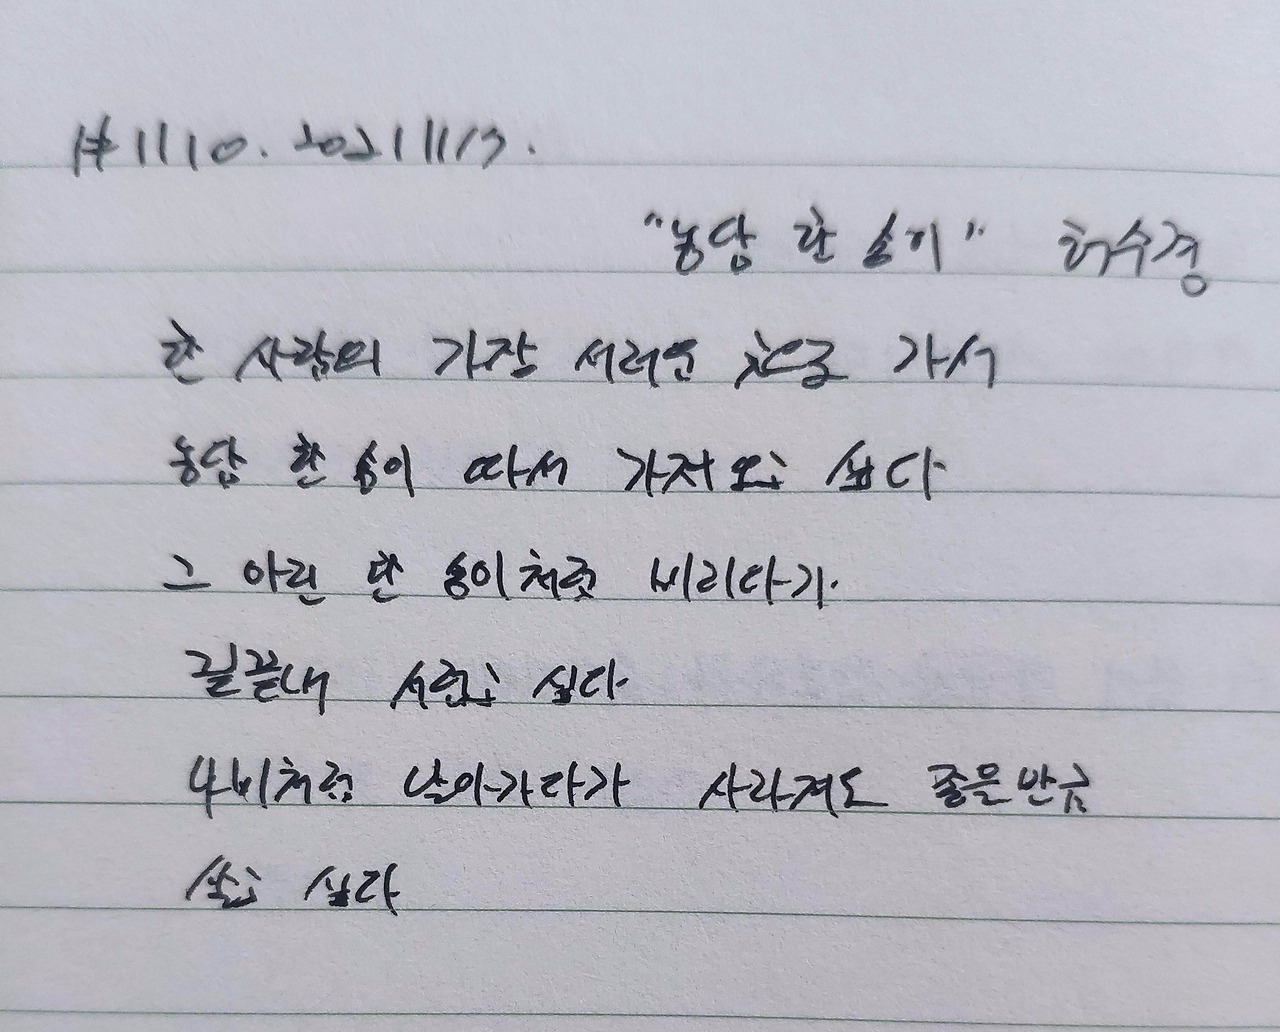 #1110. 20211113.
"농담 한 송이" 허수경
한 사람의 가장 서러운 곳으로 가서
농담 한 송이 따서 가져오고 싶다
그 아린 한 송이처럼 비리다가
끝끝내 서럽고 싶다
나비처럼 날아가다가 사라져도 좋을만큼
살고 싶다